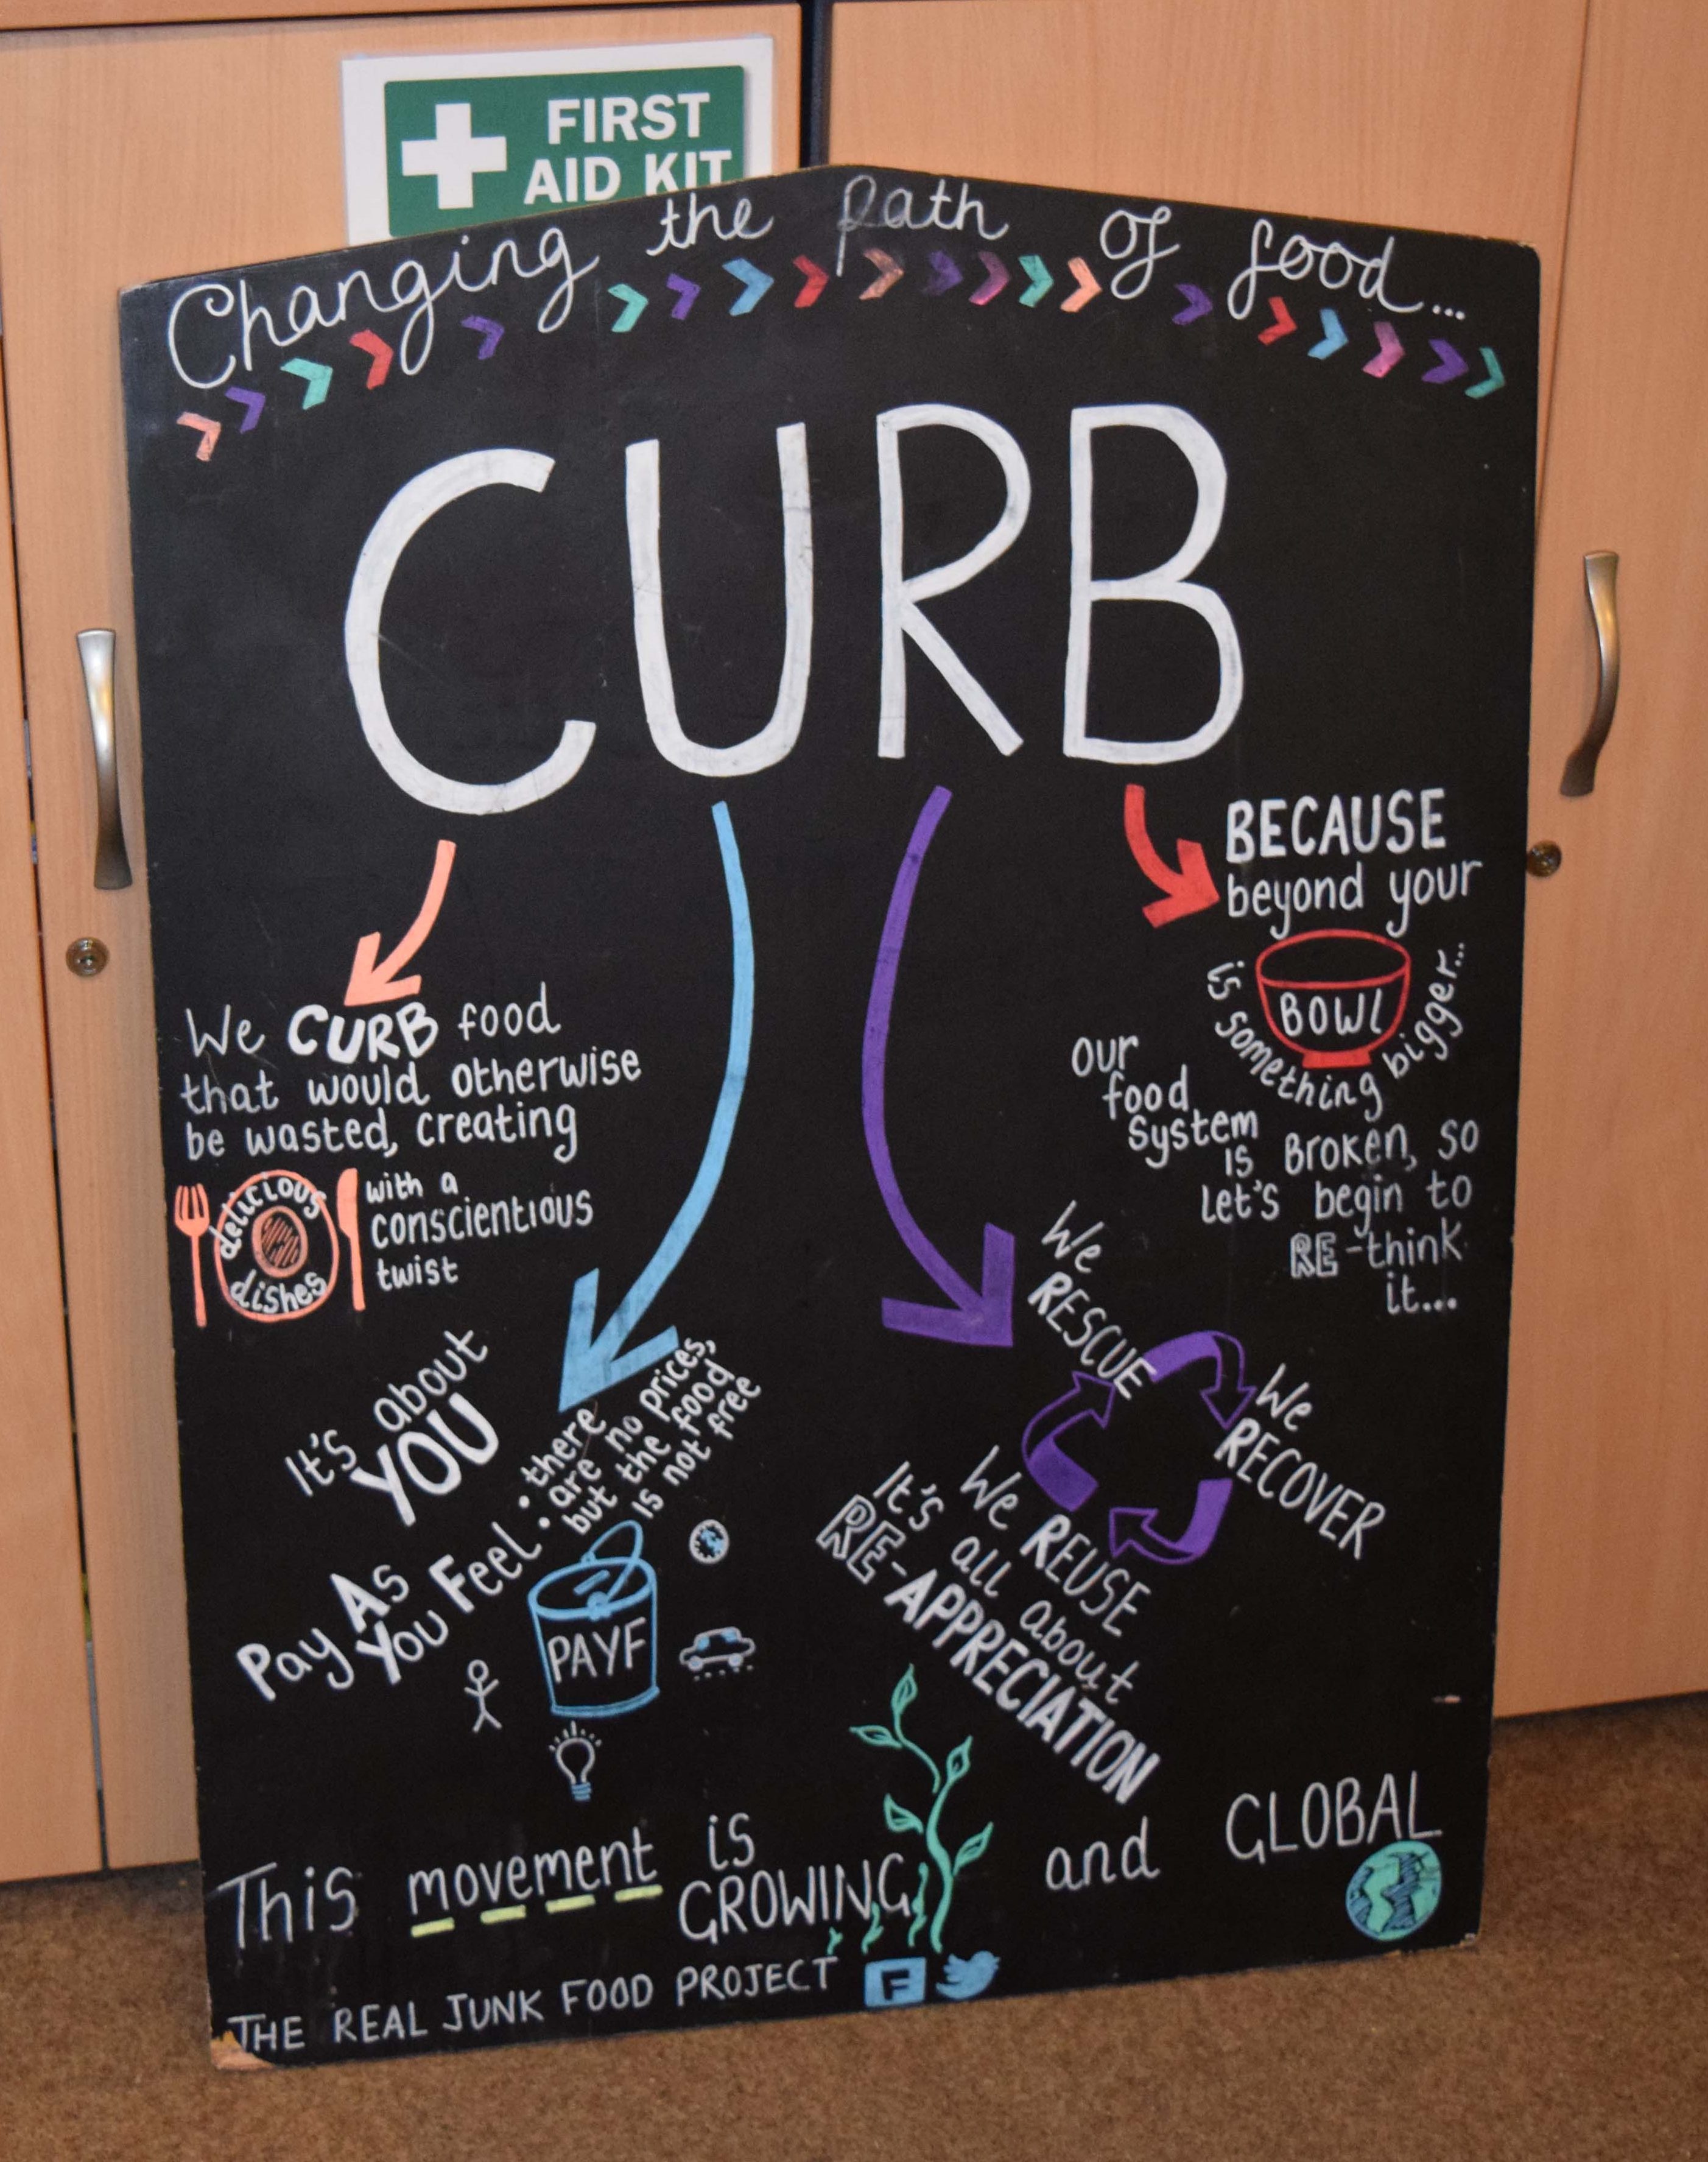 FIRST
AID KIT
Changing the path of food...
CURB
We CURB food
that would otherwise
be wasted, creating
delicious
dishes
with a
conscientious
twist
It's about
YOU
Pay As
You Feel:
there
are no prices,
but the food
is not free
PAYF
We
RESCUE
We
RECOVER
We REUSE
It's all about
RE-APPRECIATION
BECAUSE
beyond your
BOWL
is something bigger...
our
food
system
is BROKEN, so
let's begin to
RE-think
it...
This movement is
GROWING and GLOBAL
THE REAL JUNK FOOD PROJECT F